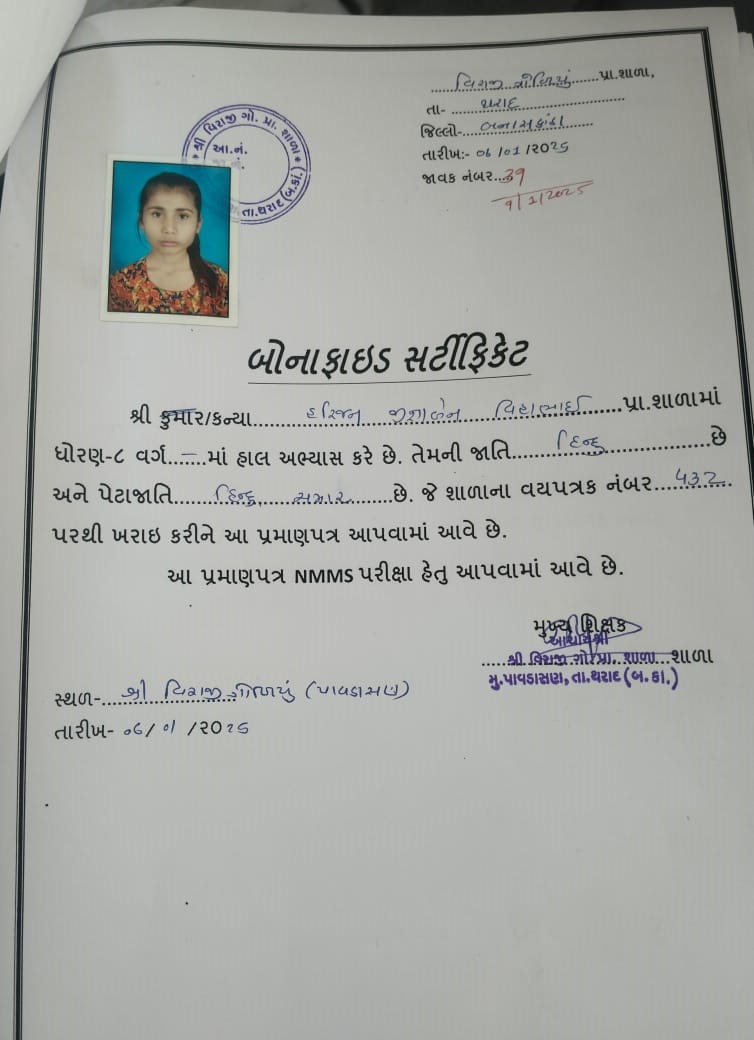 વિરાજી ગોળિયું પ્રા.શાળા,
તા- થરાદ
જિલ્લો- બનાસકાંઠા
તારીખ:- ૦૬/૦૧/૨૦૨૫
જાવક નંબર..39
9/1/2025
* શ્રી વિરાજી ગો. પ્રા. શાળા *
આ.નં.
તા.થરાદ(બ.કાં.)
બોનાફાઇડ સર્ટીફિકેટ
શ્રી કુમાર/કન્યા હરિજન જીશાબેન વિહાભાઈ પ્રા.શાળામાં
ધોરણ-૮ વર્ગ.......માં હાલ અભ્યાસ કરે છે. તેમની જાતિ હિન્દુ છે
અને પેટાજાતિ હિન્દુ, છે. જે શાળાના વયપત્રક નંબર 432
પરથી ખરાઇ કરીને આ પ્રમાણપત્ર આપવામાં આવે છે.
આ પ્રમાણપત્ર NMMS પરીક્ષા હેતુ આપવામાં આવે છે.
મુખ્ય શિક્ષક
આચાર્યશ્રી
શ્રી વિરાજી ગો.પ્રા. શાળા શાળા
મુ.પાવડાસણ, તા.થરાદ(બ.કાં.)
સ્થળ- શ્રી વિરાજી ગોળિયું (પાવડાસણ)
તારીખ- ૦૬/૦૧/૨૦૨૫